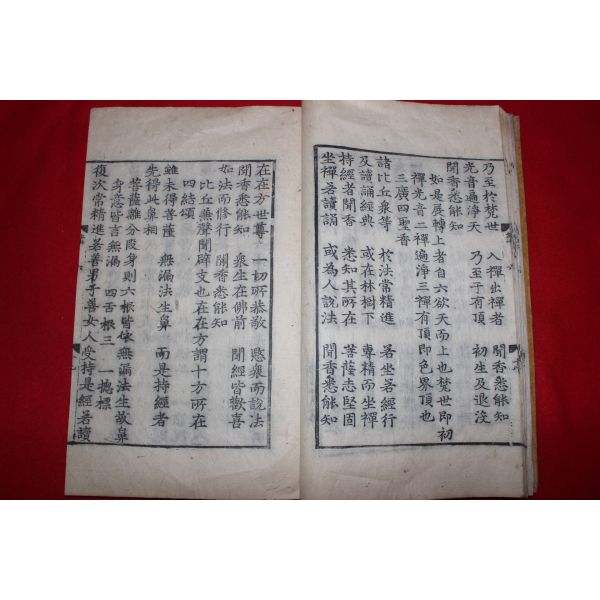 乃至於梵世　入禪出禪者　聞香悉能知
光音遍淨天　乃至于有頂　初生及退沒
聞香悉能知
如是展轉上者自六欲天而上也梵世即初
禪光音二禪遍淨三禪有頂即色界頂也
三廣四聖香
諸比丘衆等　於法常精進　若坐若經行
及讀誦經典　或在林樹下　專精而坐禪
持經者聞香　悉知其所在　菩薩志堅固
坐禪若讀誦　或為人說法　聞香悉能知
在在方世尊　一切所恭敬　愍衆而說法
聞香悉能知　衆生在佛前　聞經皆歡喜
如法而修行　聞香悉能知
比丘兼聲聞辟支也在在方謂十方所在
四結頌
雖未得菩薩　無漏法生鼻　而是持經者
先得此鼻相
菩薩離分段身則六根皆依無漏法生故鼻
身意皆言無漏　四舌根三　一摠標
復次常精進若善男子善女人受持是經若讀